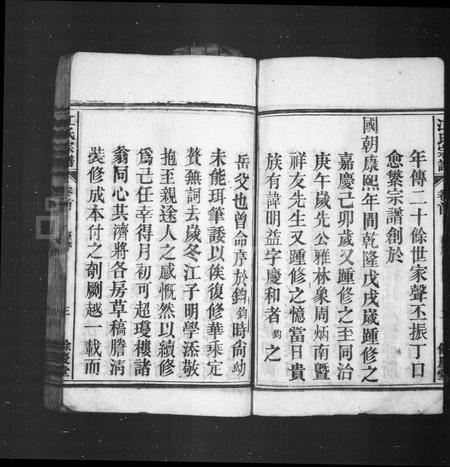 年傳二十餘世家聲丕振丁口
愈繁宗譜創於
國朝康熙年間乾隆戊戌歲踵修之
嘉慶己卯歲又踵修之至同治
庚午歲先公雅林象周炳南暨
祥友先生又踵修之憶當日貴
族有諱明益字慶和者鈞之
岳父也曾命序於鈞鈞時尚幼
未能珥筆諼以俟後修華乘定
贅無詞去歲冬江子明學添敬
抱至親途人之感慨然以續修
為己任幸得月初可超瓊樓諸
翁同心共濟將各房草稿謄淸
裝修成本付之剞劂越一載而
江氏宗譜
卷首
三
餘慶堂